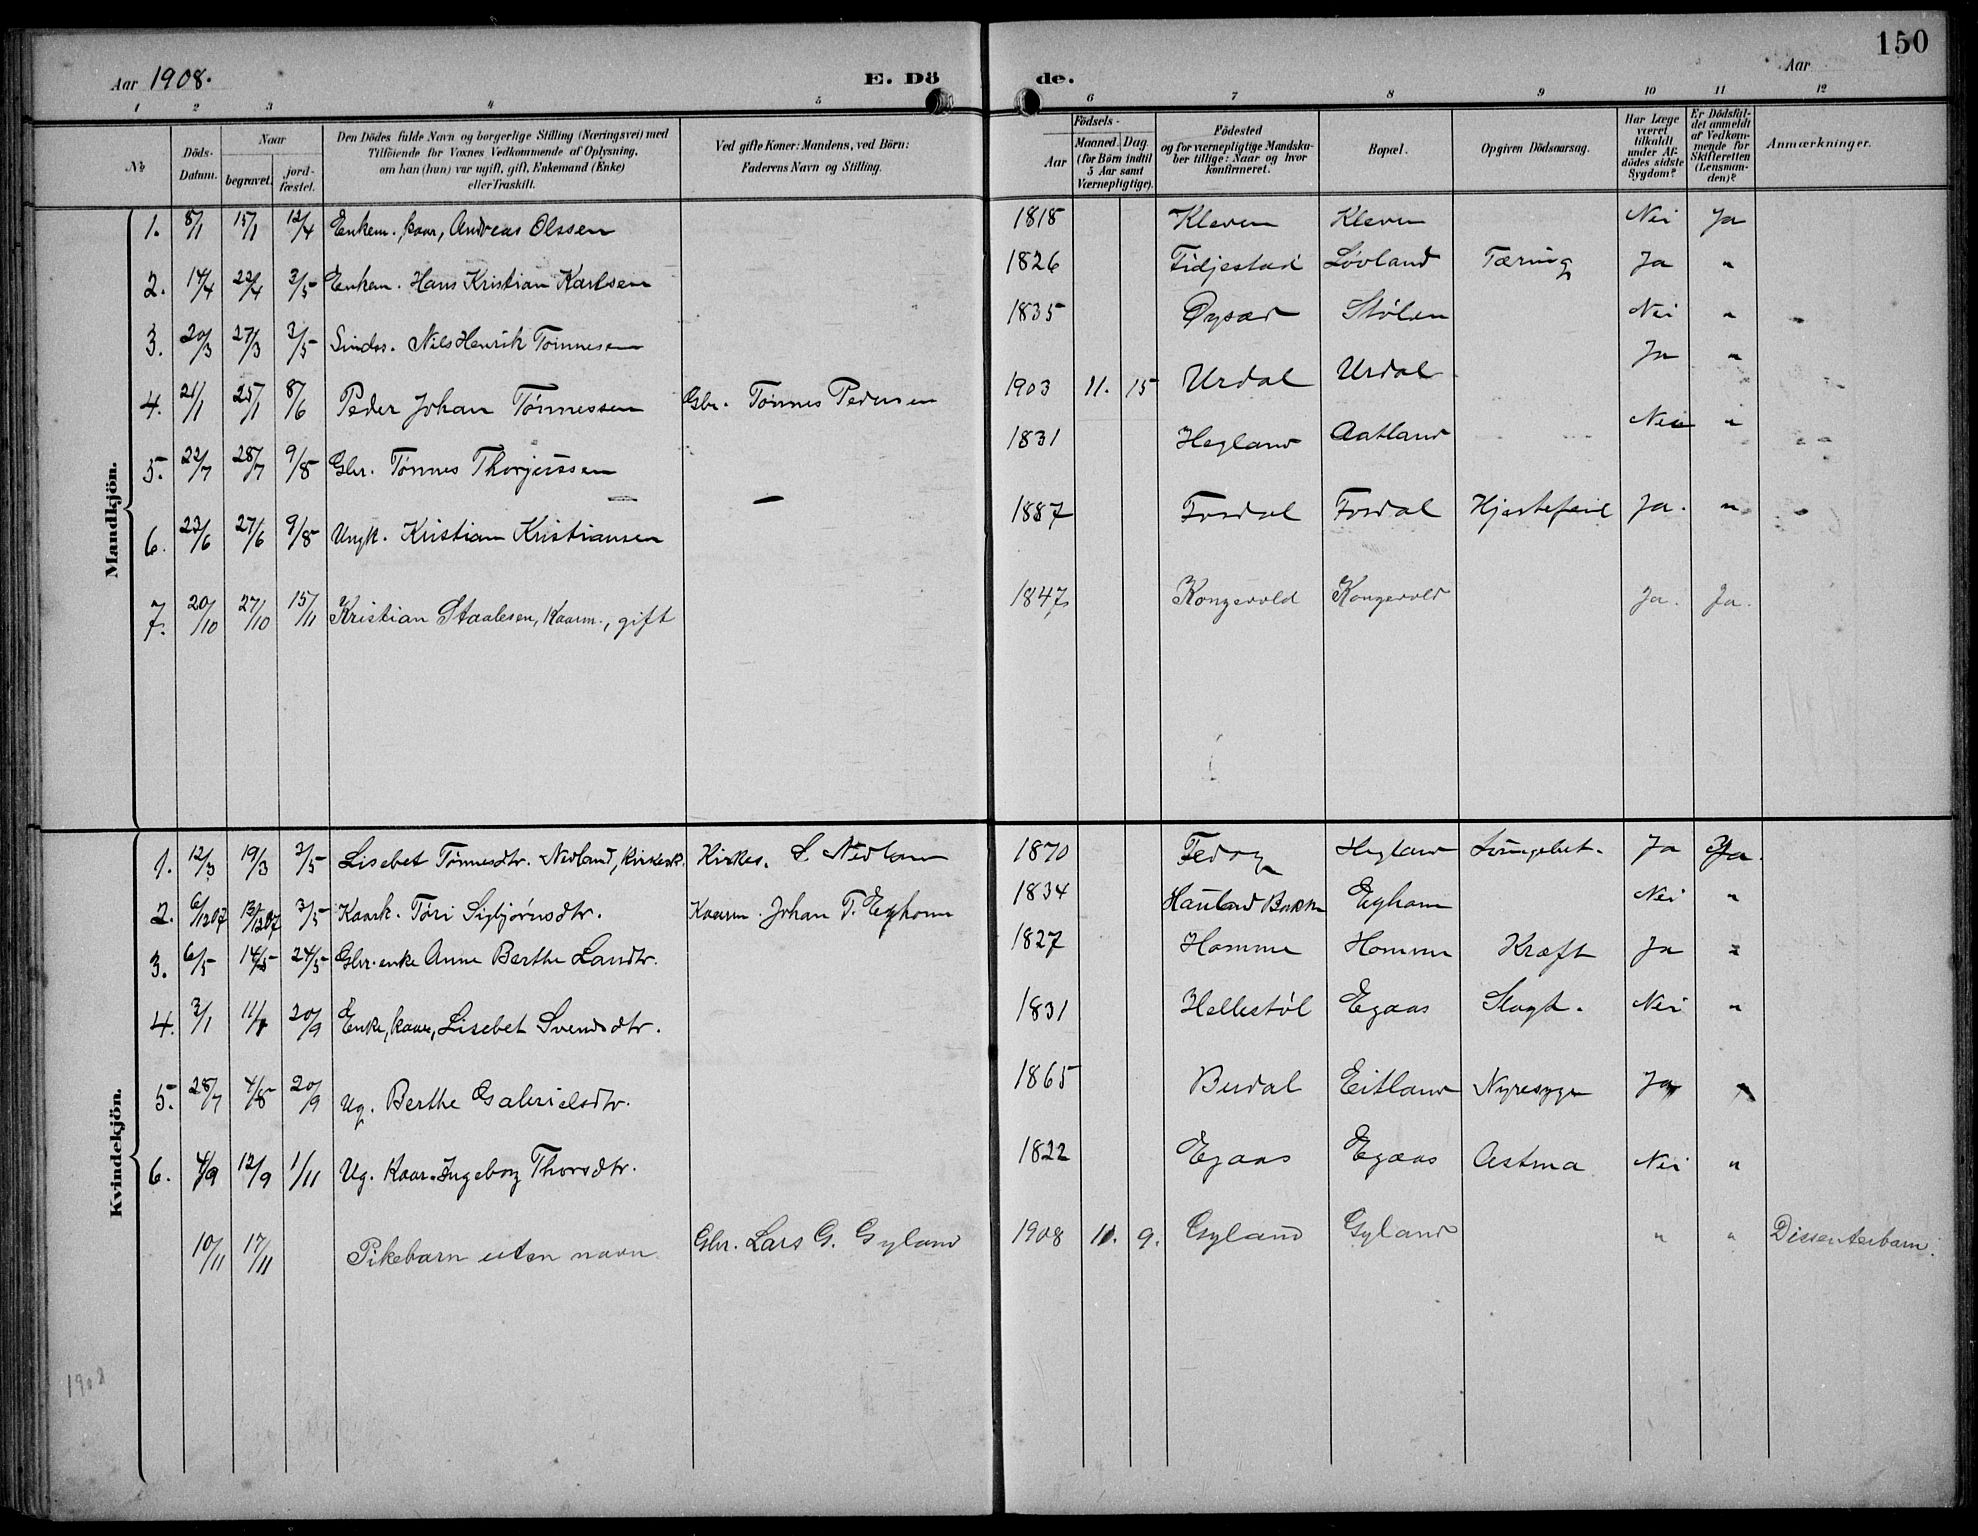 150
Aar 1908. E. Dö de. Aar
1 2 3 4 5 6 7 8 9 10 11 12
No
Döds-Datum.
Naar begravet. jord-fæstet.
Den Dödes fulde Navn og borgerlige Stilling (Næringsvei) med
Tilföiende for Voxnes Vedkommende af Oplysning,
om han (hun) var ugift, gift, Enkemand (Enke)
eller Fraskilt.
Ved gifte Koner: Mandens, ved Börn:
Faderens Navn og Stilling.
Födsels-
Aar Maaned. Dag.
(for Börn indtil
5 Aar samt
Værnepligtige).
Födested
og for værnepligtige Mandska-
ber tillige: Naar og hvor
konfirmeret.
Bopæl.
Opgiven Dödsaarsag.
Har Læge
været
tilkaldt
under Af-
dödes sidste
Sygdom?
Er Dödsfal-
det anmeldt
af Vedkom-
mende for
Skifteretten
(Lensman-
den)?
Anmærkninger.
Mandkjön.
1. 8/1 15/1 12/4 Enkem. kaar, Andreas Olssen 1818 Kleven Kleven Nei Ja
2. 14/4 22/4 3/5 Enkem. Hans Kristian Karlsen 1826 Fidjestad Løvland Tæring Ja "
3. 20/3 27/3 3/5 Sindss. Nils Henrik Tønnesen 1835 Øysæd Stølen Nei "
4. 21/1 25/1 8/6 Peder Johan Tønnessen Gbr. Tønnes Pedersen 1903 11. 15 Urdal Urdal Ja "
5. 22/7 28/7 9/8 Gbr. Tønnes Thorjussen — 1831 Hegland Aatland Nei "
6. 23/6 27/6 9/8 Ungk. Kristian Kristiansen 1887 Fosdal Fosdal Hjertefeil Ja. "
7. 20/10 27/10 15/11 Kristian Staalesen, Kaarm., gift 1847 Kongevold Kongevold Ja. Ja.
Kvindekjön.
1. 12/3 19/3 3/5 Lisebet Tønnesdtr. Nedland, Kirkesk. Kirkes. S. Nedland 1870 Fedog Hegland Lungebet. Ja Ja.
2. 6/12 07 13/12 07 3/5 Kaark. Tøri Sigbjørnsdtr. Kaarm. Johan T. Eghom 1834 Hauland Bakke Eghom Nei "
3. 6/5 14/5 24/5 Gbr. enke Anne Berthe Larsdtr. 1827 Homme Homme Kræft Ja "
4. 3/1 11/1 20/9 Enke, kaar, Lisebet Svendsdtr. 1831 Hellestøl Egaas Slagt. Nei "
5. 28/7 4/8 20/9 Ug. Berthe Gabrielsdtr. 1865 Budal Eitland Nyresyge Ja "
6. 4/9 12/9 1/11 Ug. Kaar. Ingeborg Thorsdtr. 1822 Egaas Egaas Astma Nei "
10/11 17/11 Pikebarn uten navn Gbr. Lars G. Gyland 1908 11. 9. Gyland Gyland " " Dissenterbarn.
1908